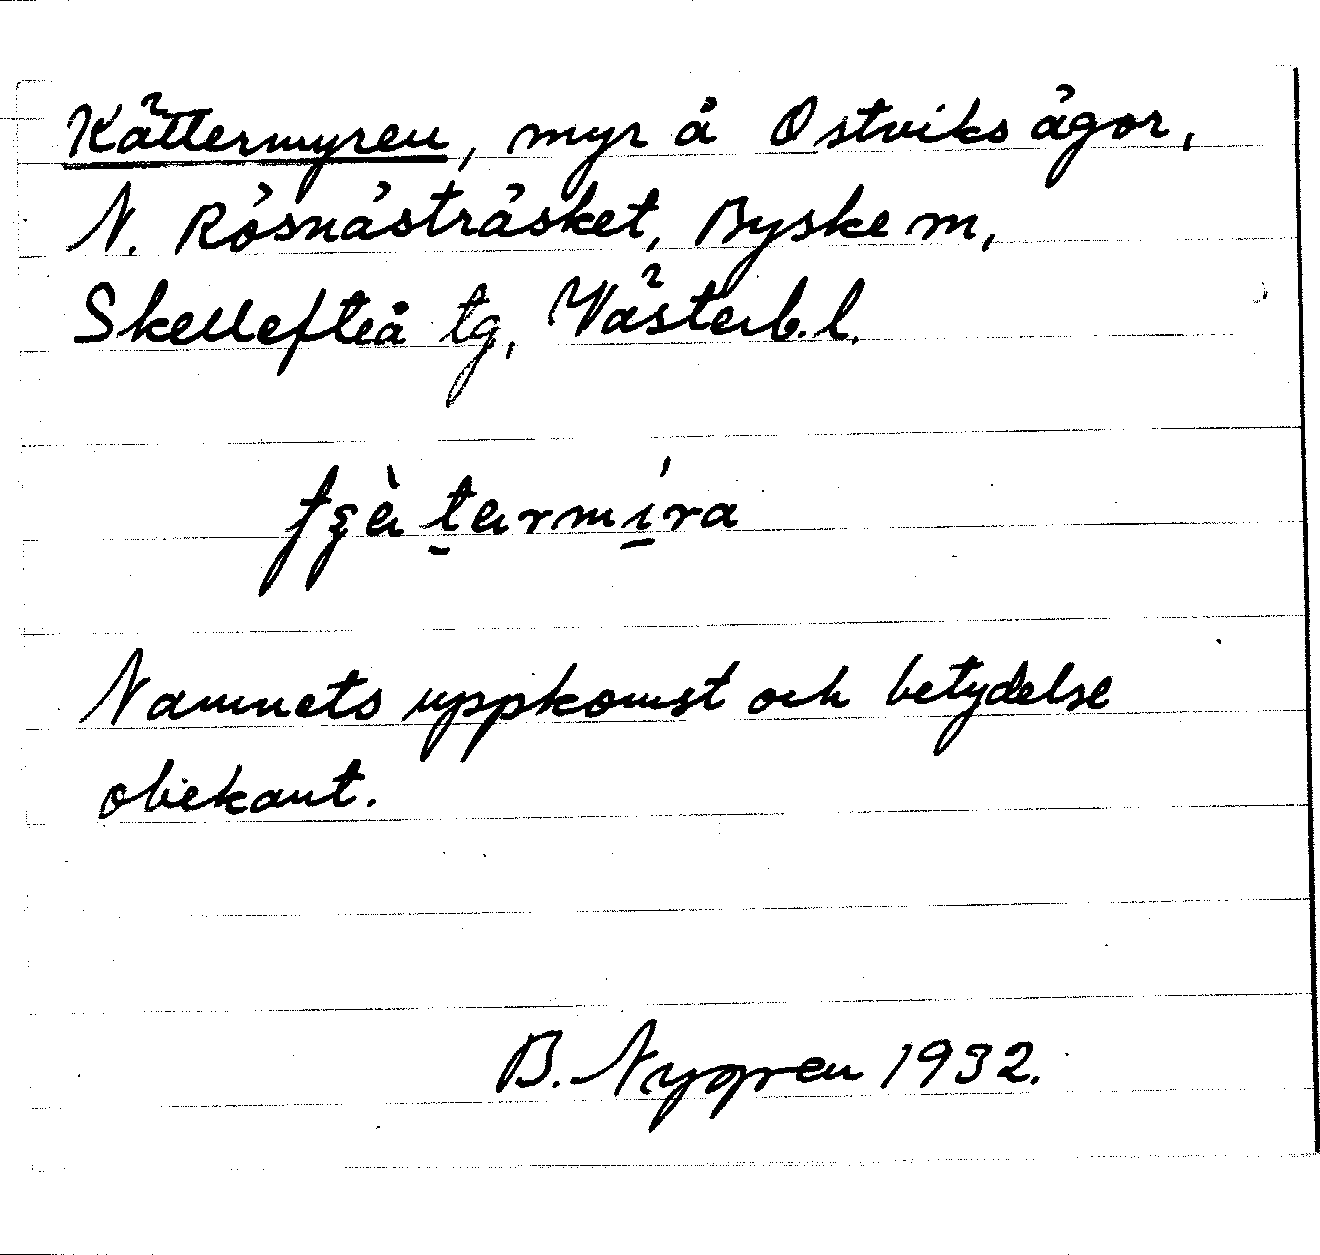 Kättermyren, myr å Ostviks ägor,
N. Rösnästräsket, Byske sn,
Skellefteå tg, Västerb. l.
Namnets uppkomst och betydelse
obekant.
B. Nygren 1932.